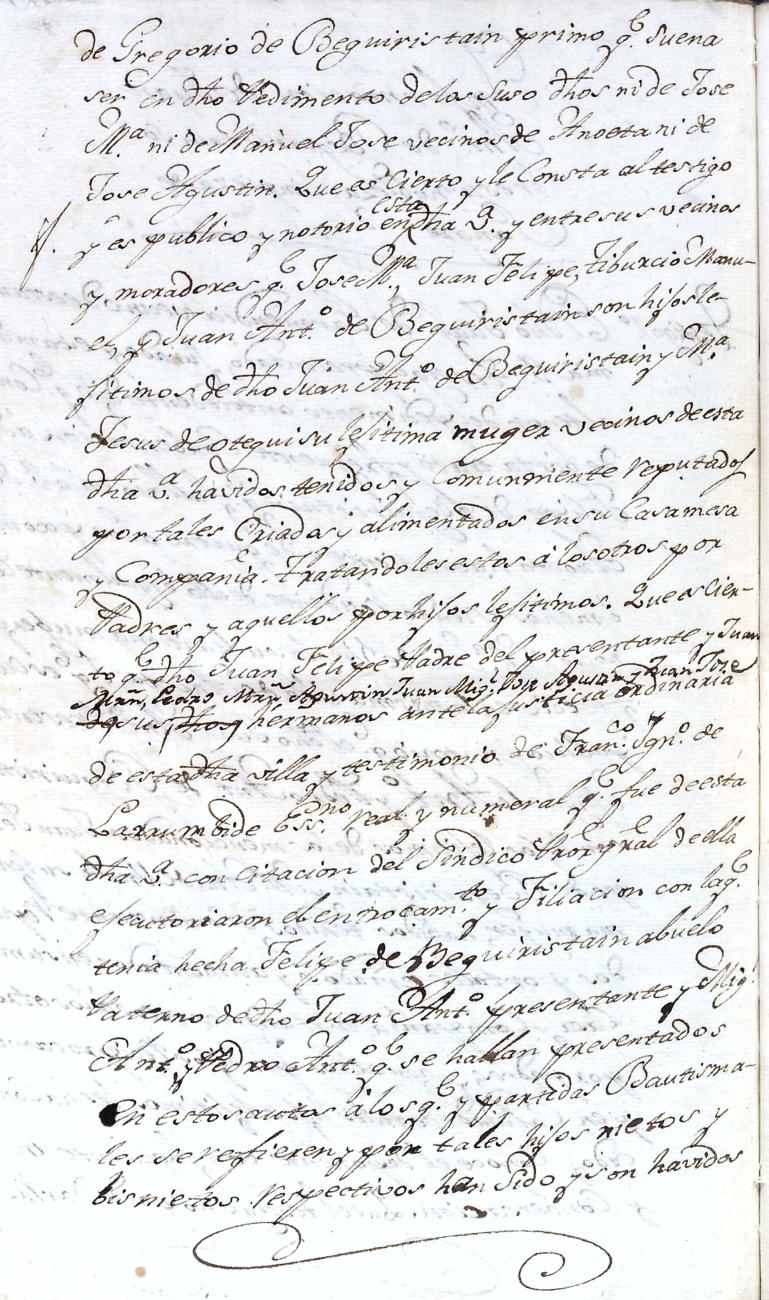 de Gregorio de Beguiristain primo q.e suena
ser en dho Pedimento de los suso dhos ni de Jose
M.a ni de Manuel Jose vecinos de Anoeta ni de
Jose Agustin. Que es cierto y le Consta al testigo
y es publico y notorio en esta dha V.a y entre sus vecinos
y moradores q.e Jose M.a, Juan Felipe, Tiburcio Manu-
el, y Juan Ant.o de Beguiristain son hijos le-
jitimos de dho Juan Ant.o de Beguiristain y M.a
Jesus de Otegui su lejitima muger vecinos de esta
dha v.a havidos tenidos y Comunmente reputados
por tales Criados y alimentados en su Casa mesa
y Compañia. Tratandoles estos á los otros por
Padres y aquellos por hijos lejitimos. Que es Cier-
to q.e dho Juan Felipe Padre del presentante y Juan
Mrñ, Pedro Mrñ, Agustin Juan Mig.l Jose Agustin y Juan Jose
sus dhos hermanos ante la Justicia ordinaria
de esta dha villa y testimonio de Fran.co Ign.o de
Larrumbide Ess.no real y numeral q.e fue de esta
dha v.a con Citacion del Sindico Pror gral de ella
efectoriaron el entrocam.to y Filiacion con la q.e
tenia hecha Felipe de Beguiristain abuelo
Paterno de dho Juan Ant.o presentante y Mig.l
Ant.o y Pedro Ant.o q.e se hallan presentados
En estos autos á los q.e y partidas Bautisma-
les se refieren y por tales hijos nietos y
bisnietos respectivos han sido y son havidos